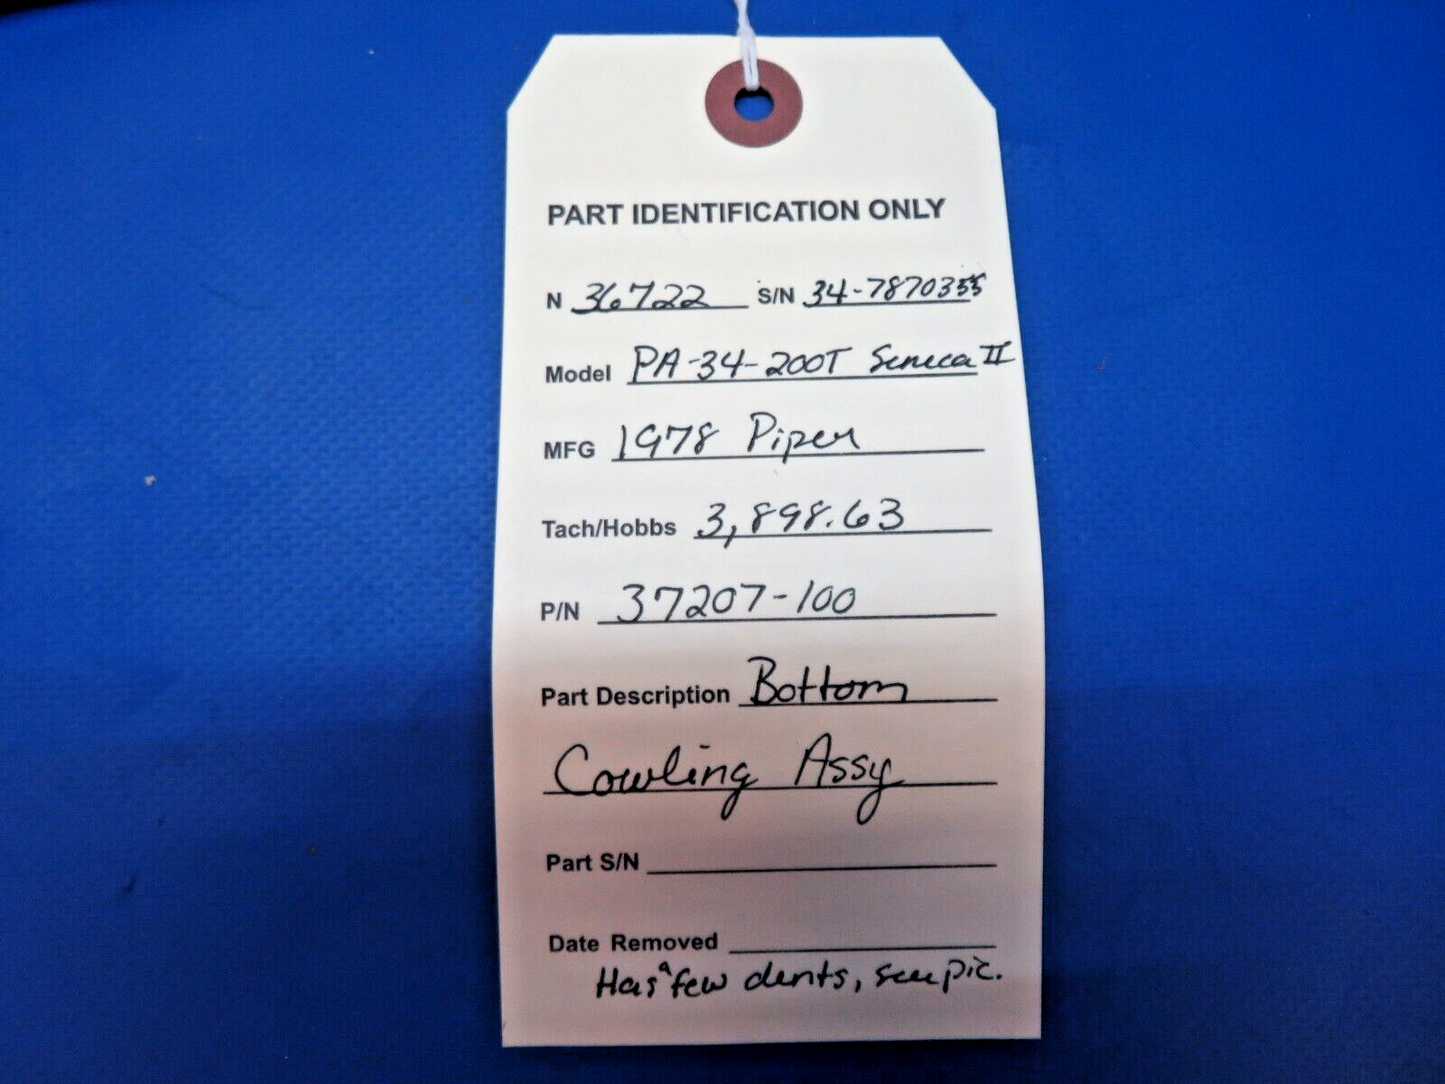 PART IDENTIFICATION ONLY
N 36722 S/N 34-7870355
Model PA-34-200T Seneca II
MFG 1978 Piper
Tach/Hobbs 3,898.63
P/N 37207-100
Part Description Bottom
Cowling Assy
Part S/N
Date Removed
Has a few dents, see pic.